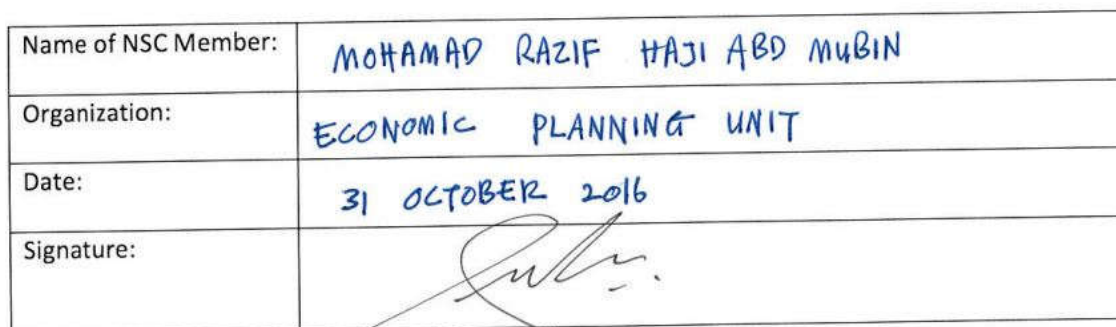 Name of NSC Member: MOHAMAD RAZIF HAJI ABD MUBIN
Organization: ECONOMIC PLANNING UNIT
Date: 31 OCTOBER 2016
Signature: